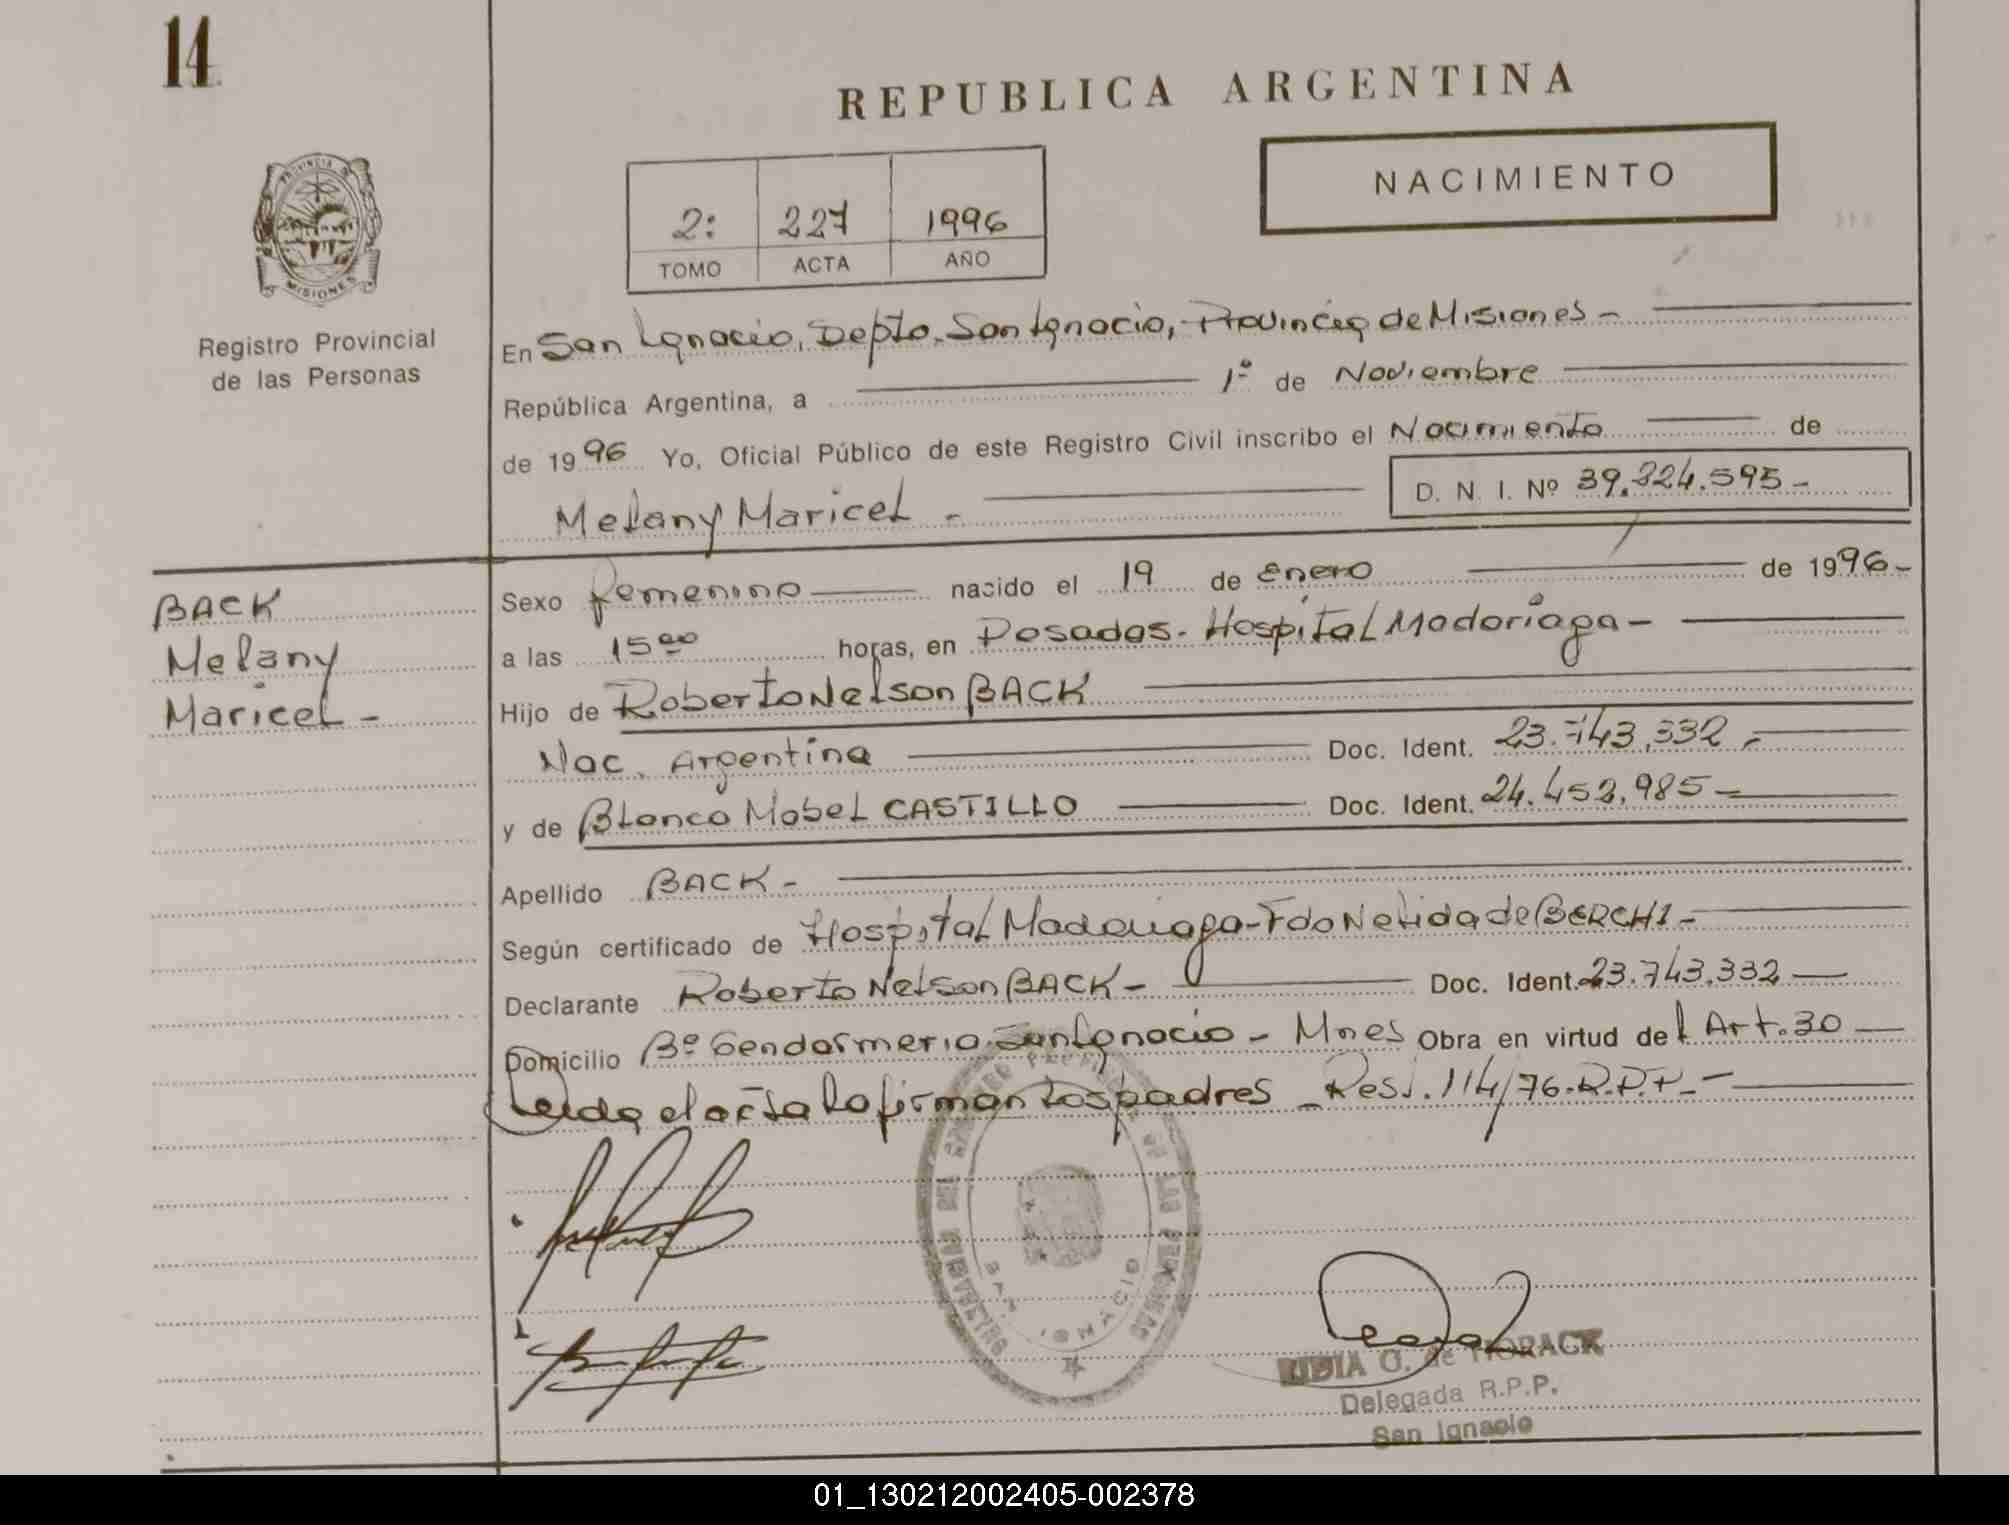 14
REPUBLICA ARGENTINA
NACIMIENTO
2: 227 1996
TOMO ACTA AÑO
PROVINCIA DE
MISIONES
Registro Provincial
de las Personas
En San Ignacio, Depto. San Ignacio, Provincia de Misiones -
República Argentina, a 1º de Noviembre
de 1996 Yo, Oficial Público de este Registro Civil inscribo el Nacimiento de
Melany Maricel - D. N. I. Nº 39.324.595-
BACK
Melany
Maricel -
Sexo femenino nacido el 19 de Enero de 1996-
a las 15 00 horas, en Posadas - Hospital Madariaga -
Hijo de Roberto Nelson BACK
Nac. Argentina Doc. Ident. 23.743.332 -
y de Blanca Mabel CASTILLO Doc. Ident. 24.452.985 -
Apellido BACK -
Según certificado de Hospital Madariaga - Fdo Nelida de BERCHI -
Declarante Roberto Nelson BACK - Doc. Ident. 23.743.332
Domicilio Bº Gendarmeria San Ignacio - Mnes Obra en virtud del Art. 30
Leida el acta la firman los padres - Res. 114/76. R.P.P. -
SAN IGNACIO
LIDIA O. de HORACK
Delegada R.P.P.
San Ignacio
01_130212002405-002378